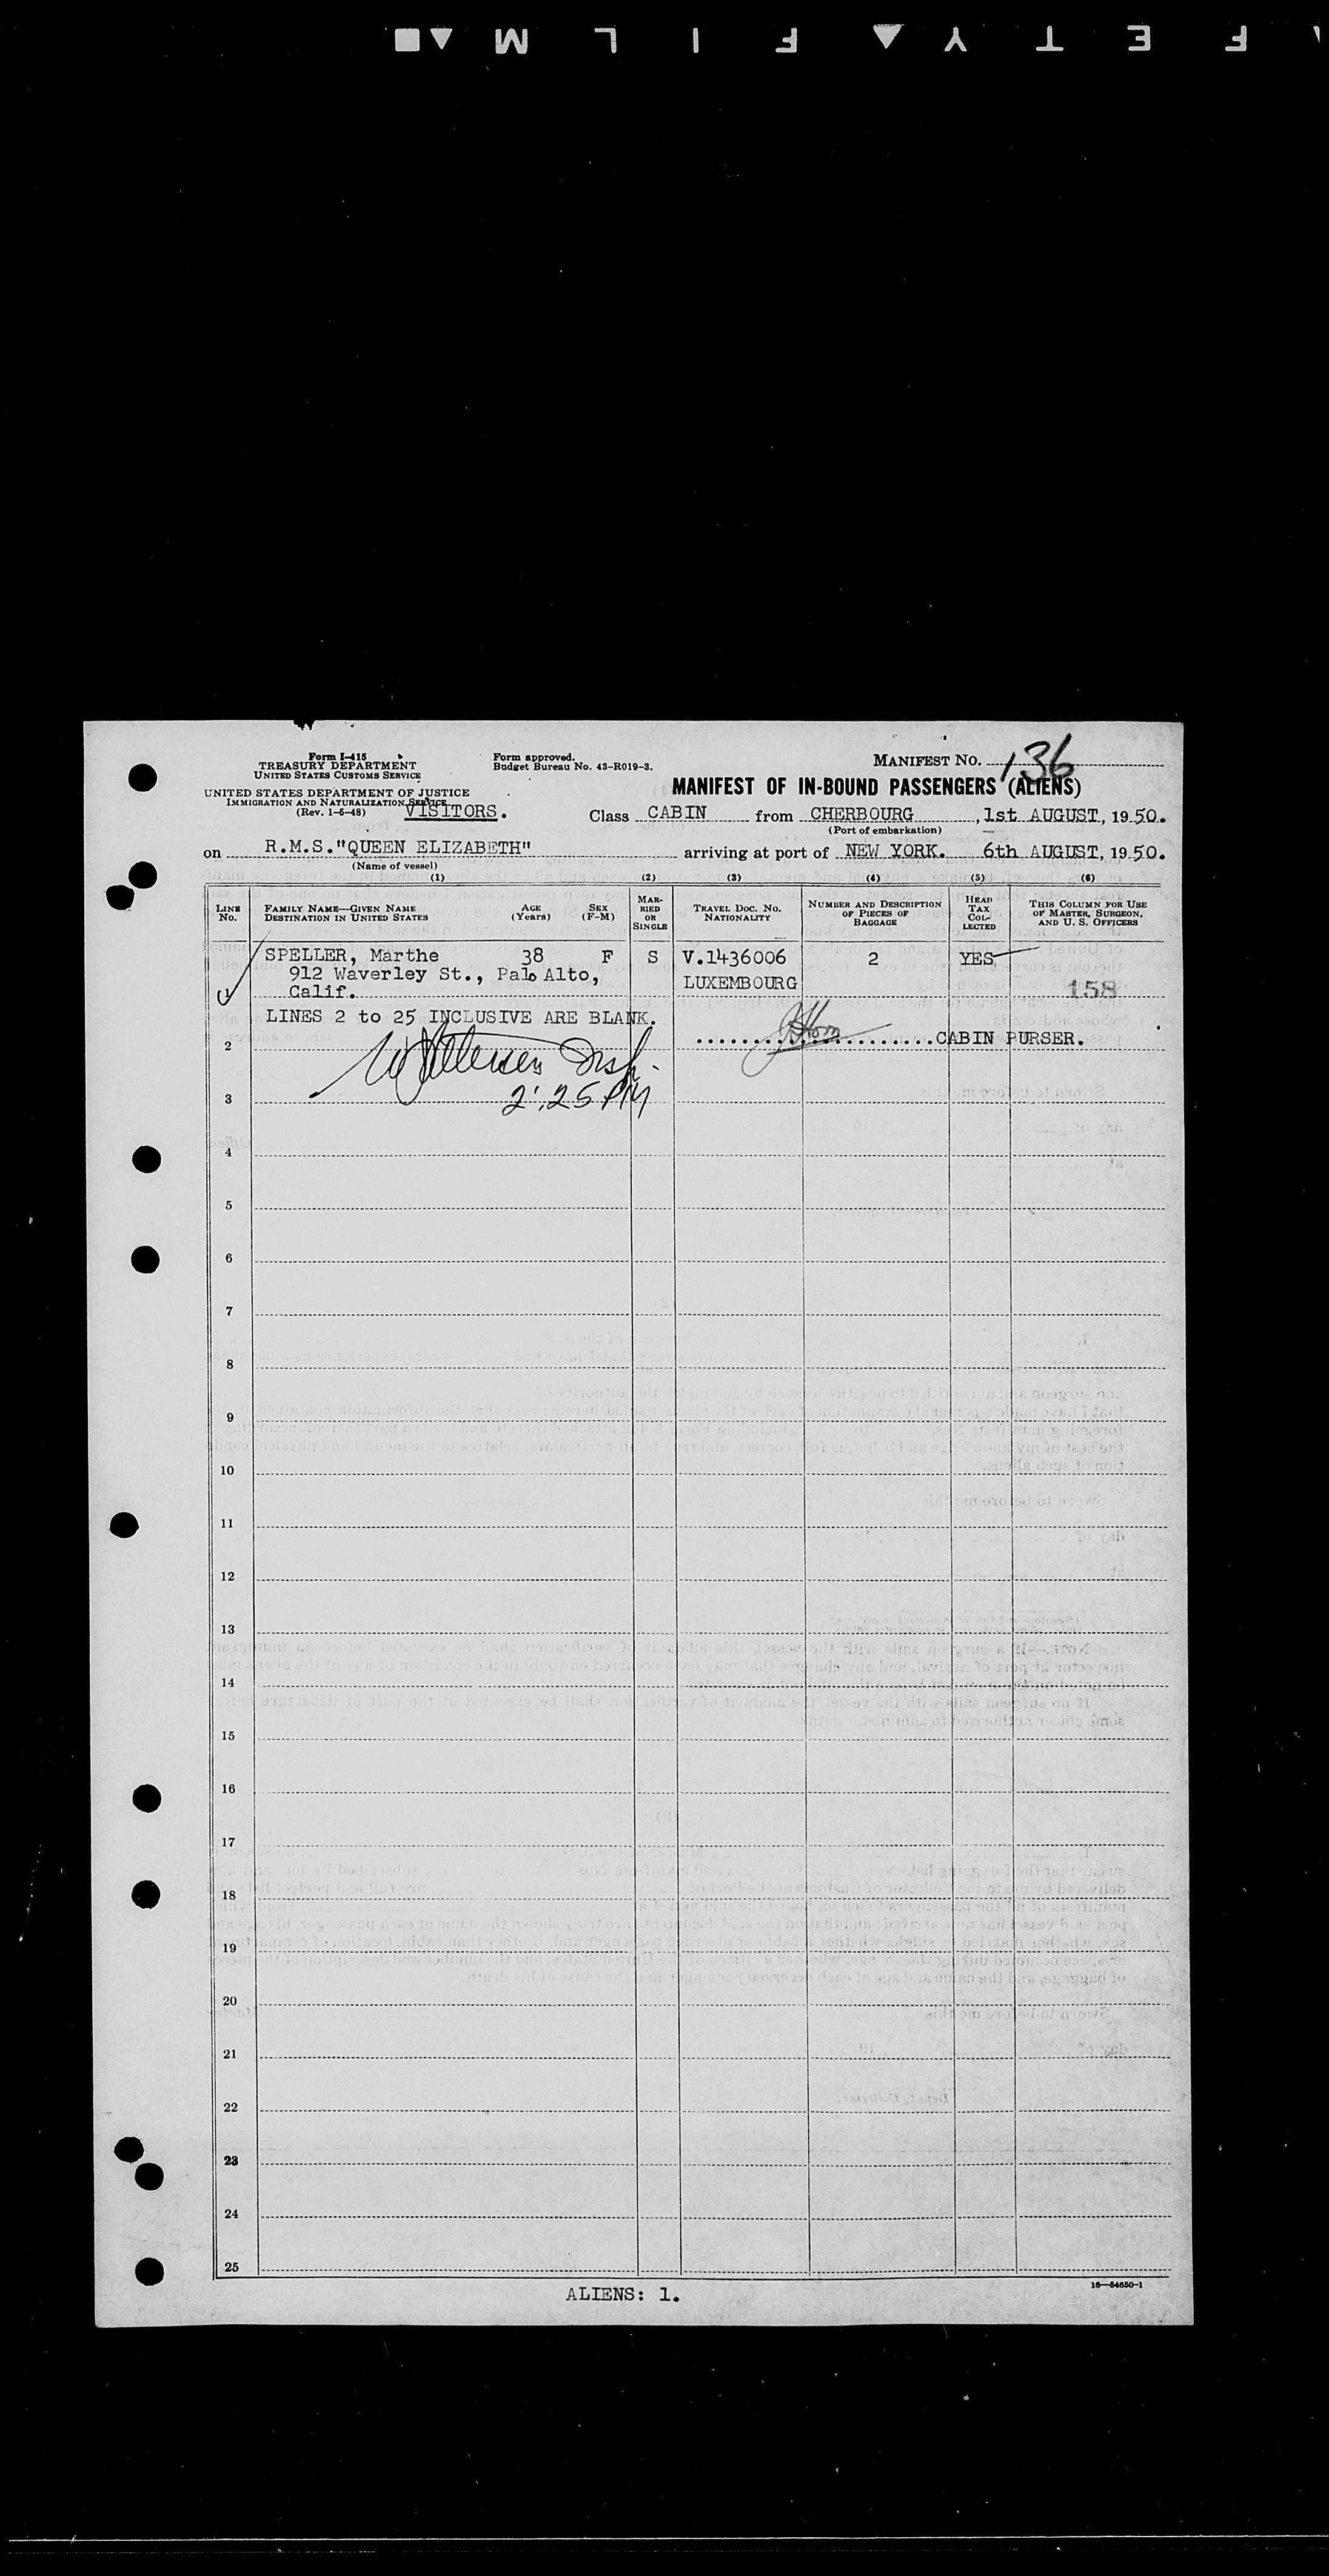 SAFETY FILM
Form I-415
TREASURY DEPARTMENT
UNITED STATES CUSTOMS SERVICE
UNITED STATES DEPARTMENT OF JUSTICE
IMMIGRATION AND NATURALIZATION SERVICE
(Rev. 1-5-48)
VISITORS.
Form approved.
Budget Bureau No. 43-R019-3.
MANIFEST No. 136
MANIFEST OF IN-BOUND PASSENGERS (ALIENS)
Class CABIN from CHERBOURG, 1st AUGUST, 1950.
(Port of embarkation)
on R.M.S."QUEEN ELIZABETH" arriving at port of NEW YORK. 6th AUGUST, 1950.
(Name of vessel)
(1) (2) (3) (4) (5) (6)
LINE No. FAMILY NAME—GIVEN NAME DESTINATION IN UNITED STATES AGE (Years) SEX (F-M) MARRIED OR SINGLE TRAVEL DOC. NO. NATIONALITY NUMBER AND DESCRIPTION OF PIECES OF BAGGAGE HEAD TAX COLLECTED THIS COLUMN FOR USE OF MASTER, SURGEON, AND U. S. OFFICERS
SPELLER, Marthe 38 F S V.1436006 2 YES
912 Waverley St., Palo Alto, LUXEMBOURG
1 Calif. 158
LINES 2 to 25 INCLUSIVE ARE BLANK.
CABIN PURSER.
2
2:25 PM
3
4
5
6
7
8
9
10
11
12
13
14
15
16
17
18
19
20
21
22
23
24
25
ALIENS: 1.
16—54650-1